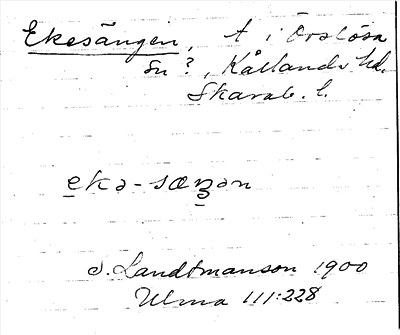 Ekesängen, t i Örslösa
sn?, Kållands hd.
Skarab. l.
eka-sæŋən
S. Landtmanson 1900
Ulma 111:228